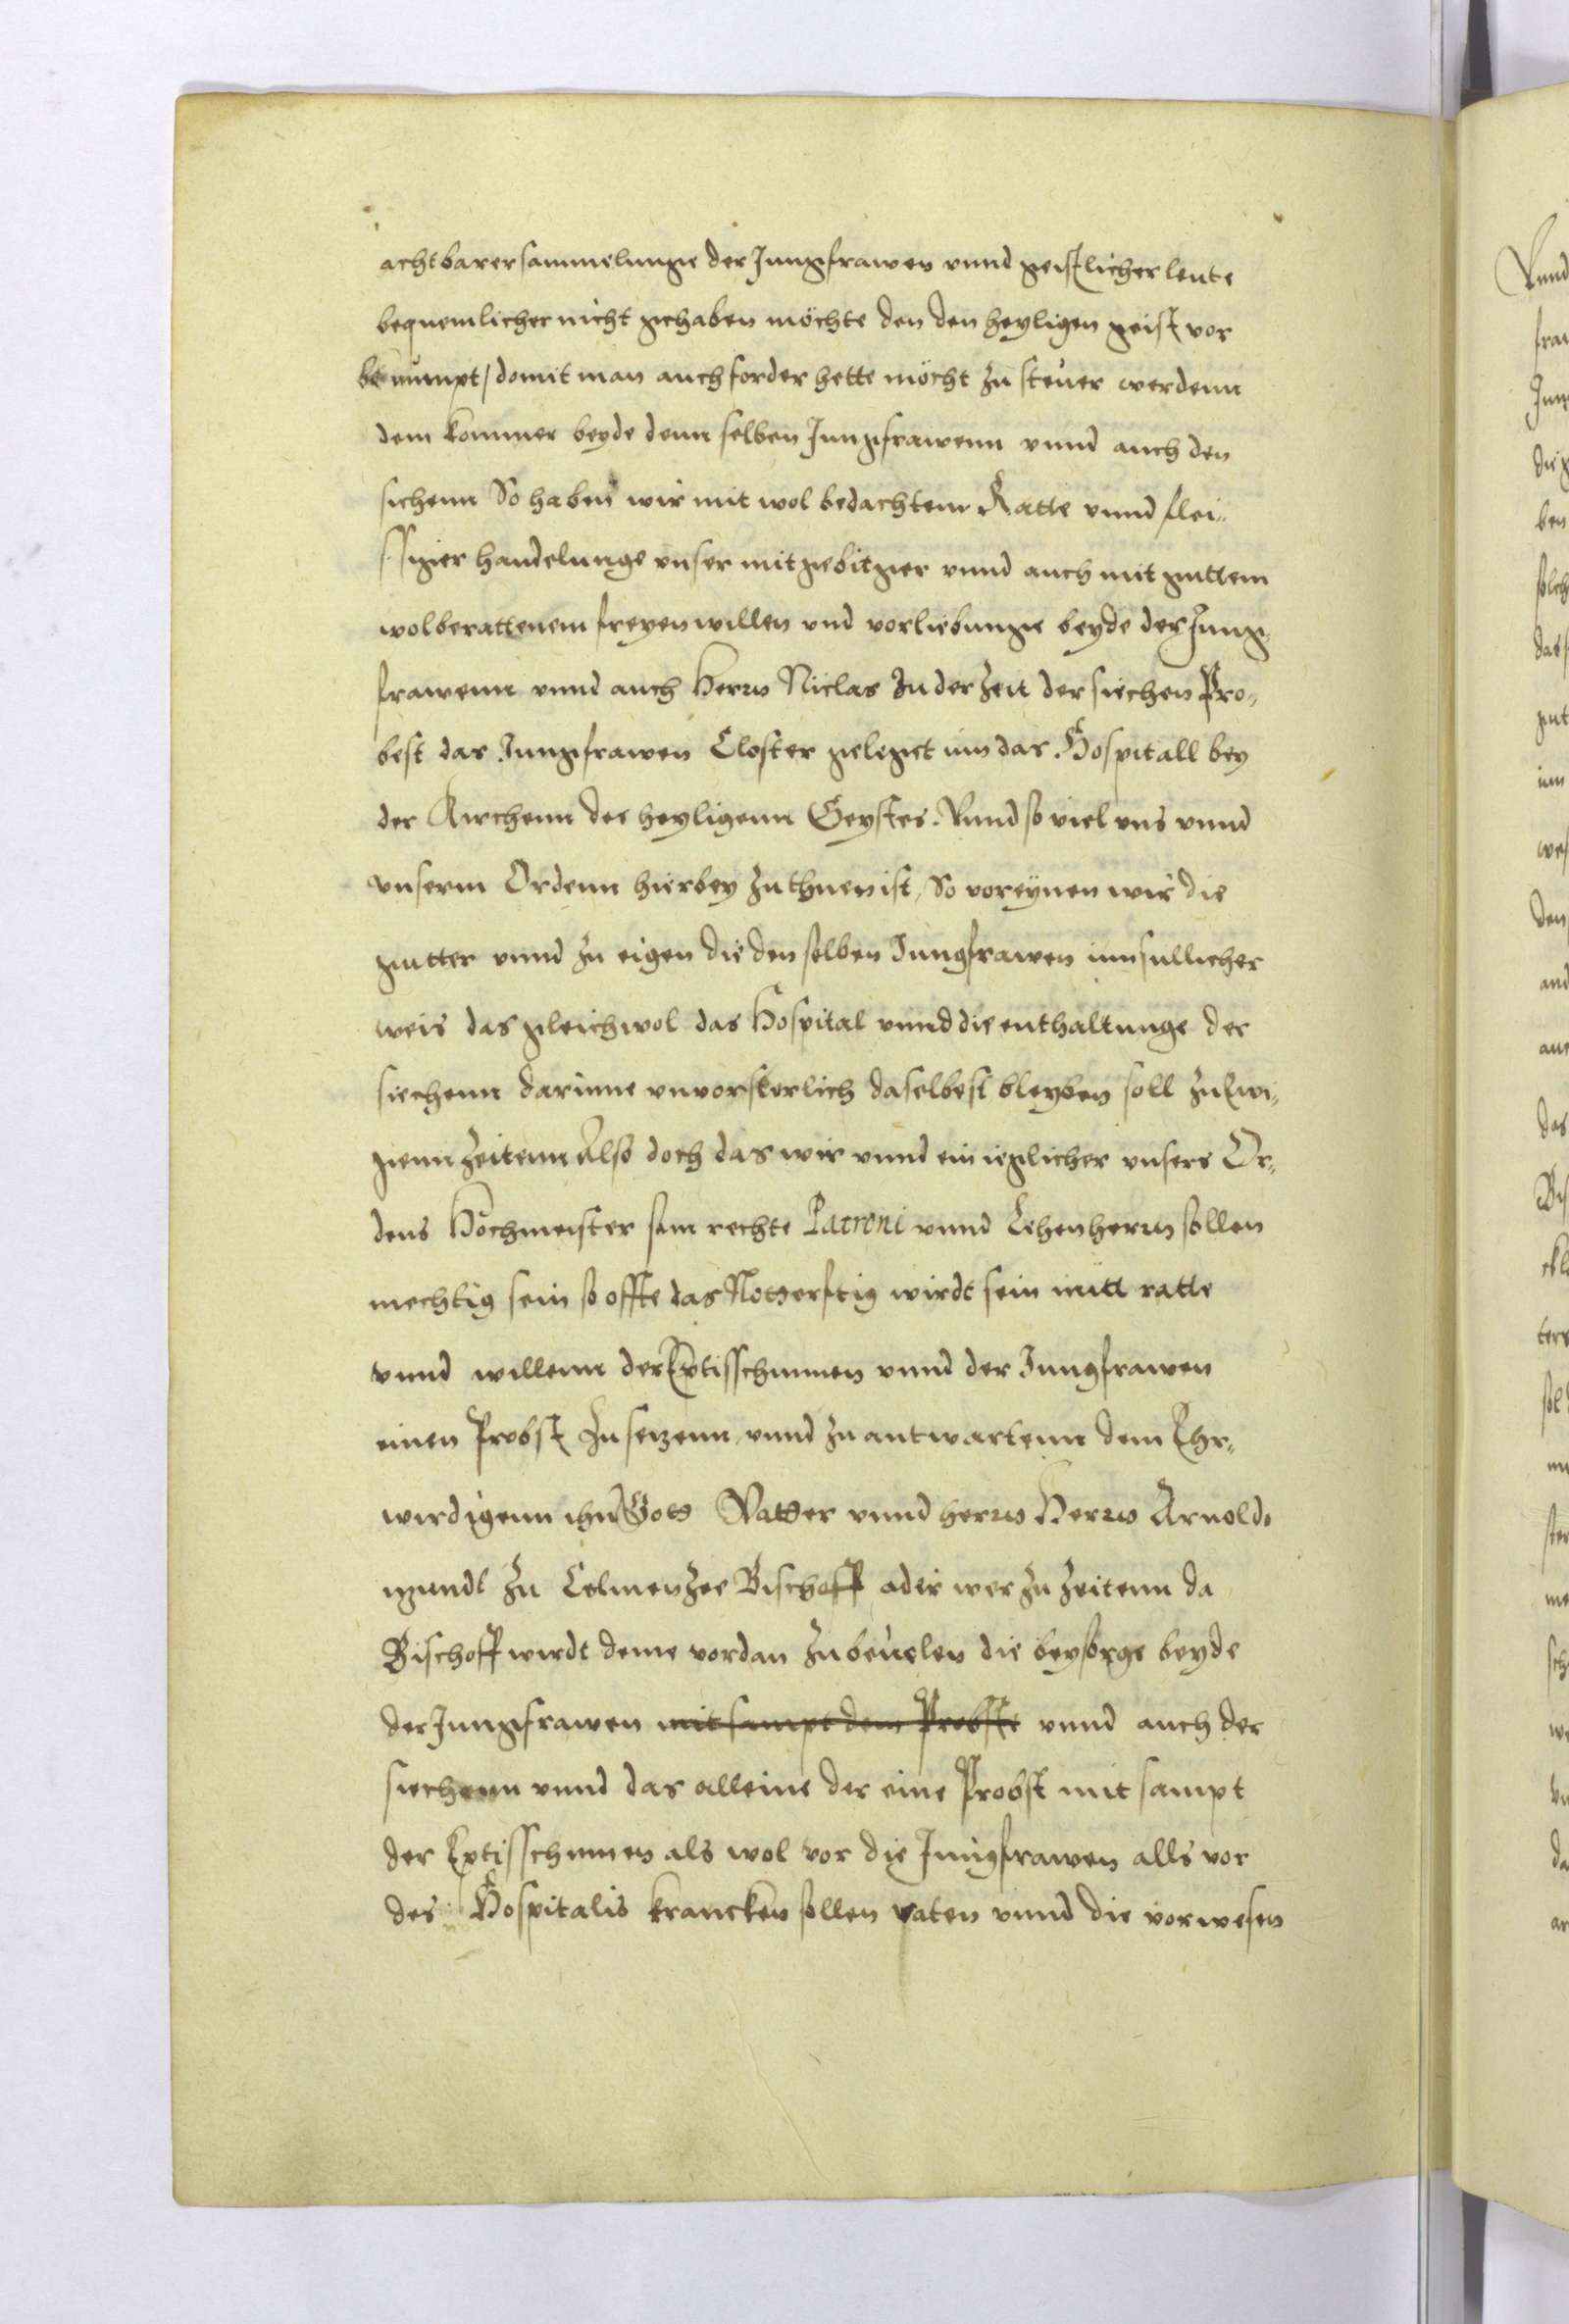 achtbarersammelunge der Jungfrawen vnnd geistlicher leute
bequemlicher nicht gehaben möchte den den heyligen geist vor
benumpt/ domit man auch forder hette möcht zu steuer werdenn
dem kommer beyde denn selben Jungfrawenn vnnd auch den
sichenn So haben wir mit wol bedachtem Ratte vnnd flei„
ssiger handelunge vnser mitgebitger vnnd auch mit guttem
wolberattenem freyen willen vnd vorliebunge beyde der Jung„
frawenn vnnd auch Herrn Niclas Zu der Zeit der siechen Pro„
best das Jungfrawen Closter geleget inn das Hospitall bey
der Kirchenn des heyligenn Geystes. Vnnd so viel vns vnnd
vnserm Ordenn hierbey zu thuen ist, So voreynen wir die
gutter vnnd zu eigen die denselben Jungfrawen inn sullicher
weis das gleichwol das Hospital vnnd die enthaltunge der
siechenn darinne vnvorserlich daselbest bleyben soll zu Ewi„
genn zeitenn Also doch das wir vnnd ein ieglicher vnsers Or„
dens Hochmeister sam rechte Patroni vnnd Lehenherrn sollen
mechtig sein so offte das Notterftig wirdt sein mitt ratte
vnnd willenn der Eptisschinnen vnnd der Jungfrawen
einen Probst Zu setzenn, vnnd zu antwartenn dem Ehr„
wirdigenn ihn Gott Vatter vnnd herrn Herrn Arnoldo
itzundt zu Colmenzee Bischoff ader wer zu zeitenn da
Bischoff wirdt deme vordan zu beuelen die beysorge beyde
der Jungfrawen mit sampt dem Probste vnnd auch der
siechenn vnnd das alleine der eine Probst mit sampt
der Eptisschinnen als wol vor die Jungfrawen alls vor
des Hospitalis krancken sollen raten vnnd die vorwesen